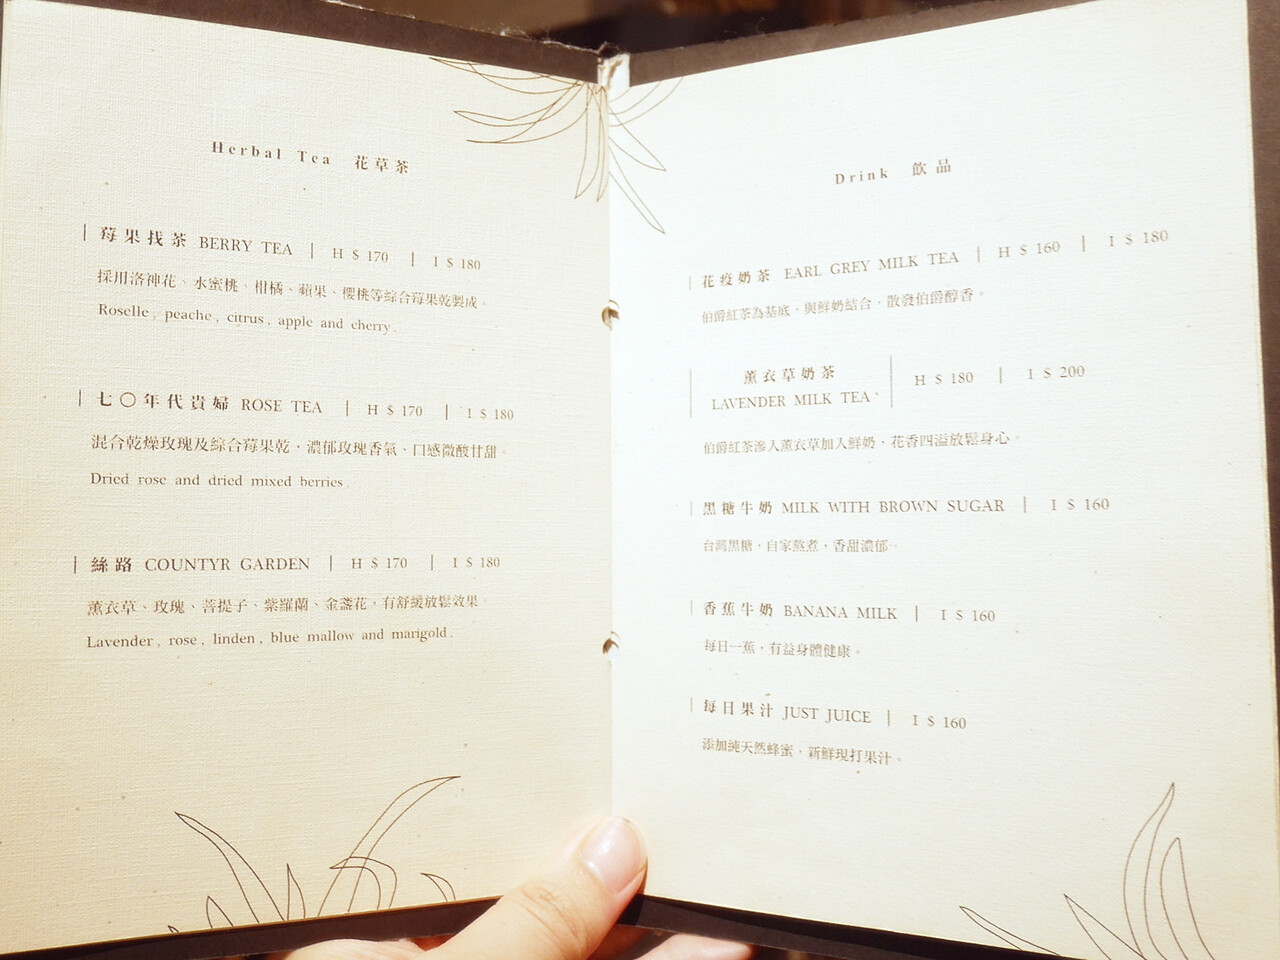 Herbal Tea 花草茶
莓果找茶 BERRY TEA | H $ 170 | I $ 180
採用洛神花、水蜜桃、柑橘、蘋果、櫻桃等綜合莓果乾製成。
Roselle, peache, citrus, apple and cherry.
七〇年代貴婦 ROSE TEA | H $ 170 | I $ 180
混合乾燥玫瑰及綜合莓果乾，濃郁玫瑰香氣、口感微酸甘甜。
Dried rose and dried mixed berries.
絲路 COUNTYR GARDEN | H $ 170 | I $ 180
薰衣草、玫瑰、菩提子、紫羅蘭、金盞花，有舒緩放鬆效果。
Lavender, rose, linden, blue mallow and marigold.
Drink 飲品
花疫奶茶 EARL GREY MILK TEA | H $ 160 | I $ 180
伯爵紅茶為基底，與鮮奶結合，散發伯爵醇香。
薰衣草奶茶
LAVENDER MILK TEA | H $ 180 | I $ 200
伯爵紅茶滲入薰衣草加入鮮奶，花香四溢放鬆身心。
黑糖牛奶 MILK WITH BROWN SUGAR | I $ 160
台灣黑糖，自家熬煮，香甜濃郁。
香蕉牛奶 BANANA MILK | I $ 160
每日一蕉，有益身體健康。
每日果汁 JUST JUICE | I $ 160
添加純天然蜂蜜，新鮮現打果汁。